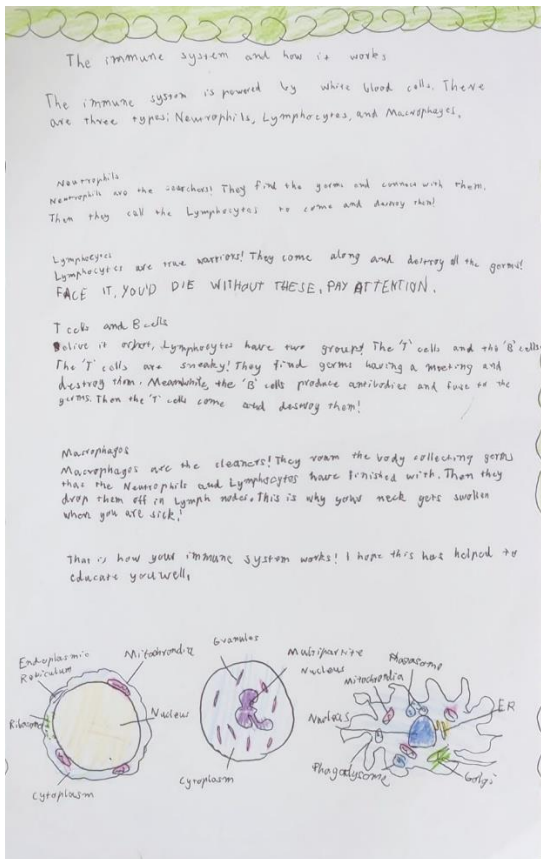 The immune system and how it works
The immune system is powered by white blood cells. There
are three types; Neutrophils, Lymphocytes, and Macrophages.
Neutrophils
Neutrophils are the searchers! They find the germs and connect with them.
Then they call the Lymphocytes to come and destroy them!
Lymphocytes
Lymphocytes are true warriors! They come along and destroy all the germs!
FACE IT, YOU'D DIE WITHOUT THESE, PAY ATTENTION.
T cells and B cells
Belive it or not, Lymphocytes have two groups! The 'T' cells and the 'B' cells.
The 'T' cells are sneaky! They find germs having a meeting and
destroy them. Meanwhile, the 'B' cells produce antibodies and fuse to the
germs. Then the 'T' cells come and destroy them!
Macrophages
Macrophages are the cleaners! They roam the body collecting germs
that the Neutrophils and Lymphocytes have finished with. Then they
drop them off in Lymph nodes. This is why your neck gets swollen
when you are sick!
That is how your immune system works! I hope this has helped to
educate you well.
Endoplasmic
Reticulum
Mitochondria
Ribosome
Nucleus
Cytoplasm
Granules
Multipartite
Nucleus
Cytoplasm
Phagosome
Mitochondria
Nucleus
ER
Phagolysome
Golgi